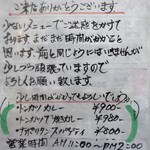 ご来店ありがとうございます
少ないメニューでご迷惑をかけて
おります まだまだ時間がかかると
思います。前と同じようにはいきませんが
少しづつ頑張っていますので
よろしくお願い致します。
少し時間がかかってもよろしいですか。
・トンカツカレー ¥900-
・トンカツ カレー ¥900-
・ナポリタンスパゲティ ¥800-
営業時間 AM11:00〜PM2:00